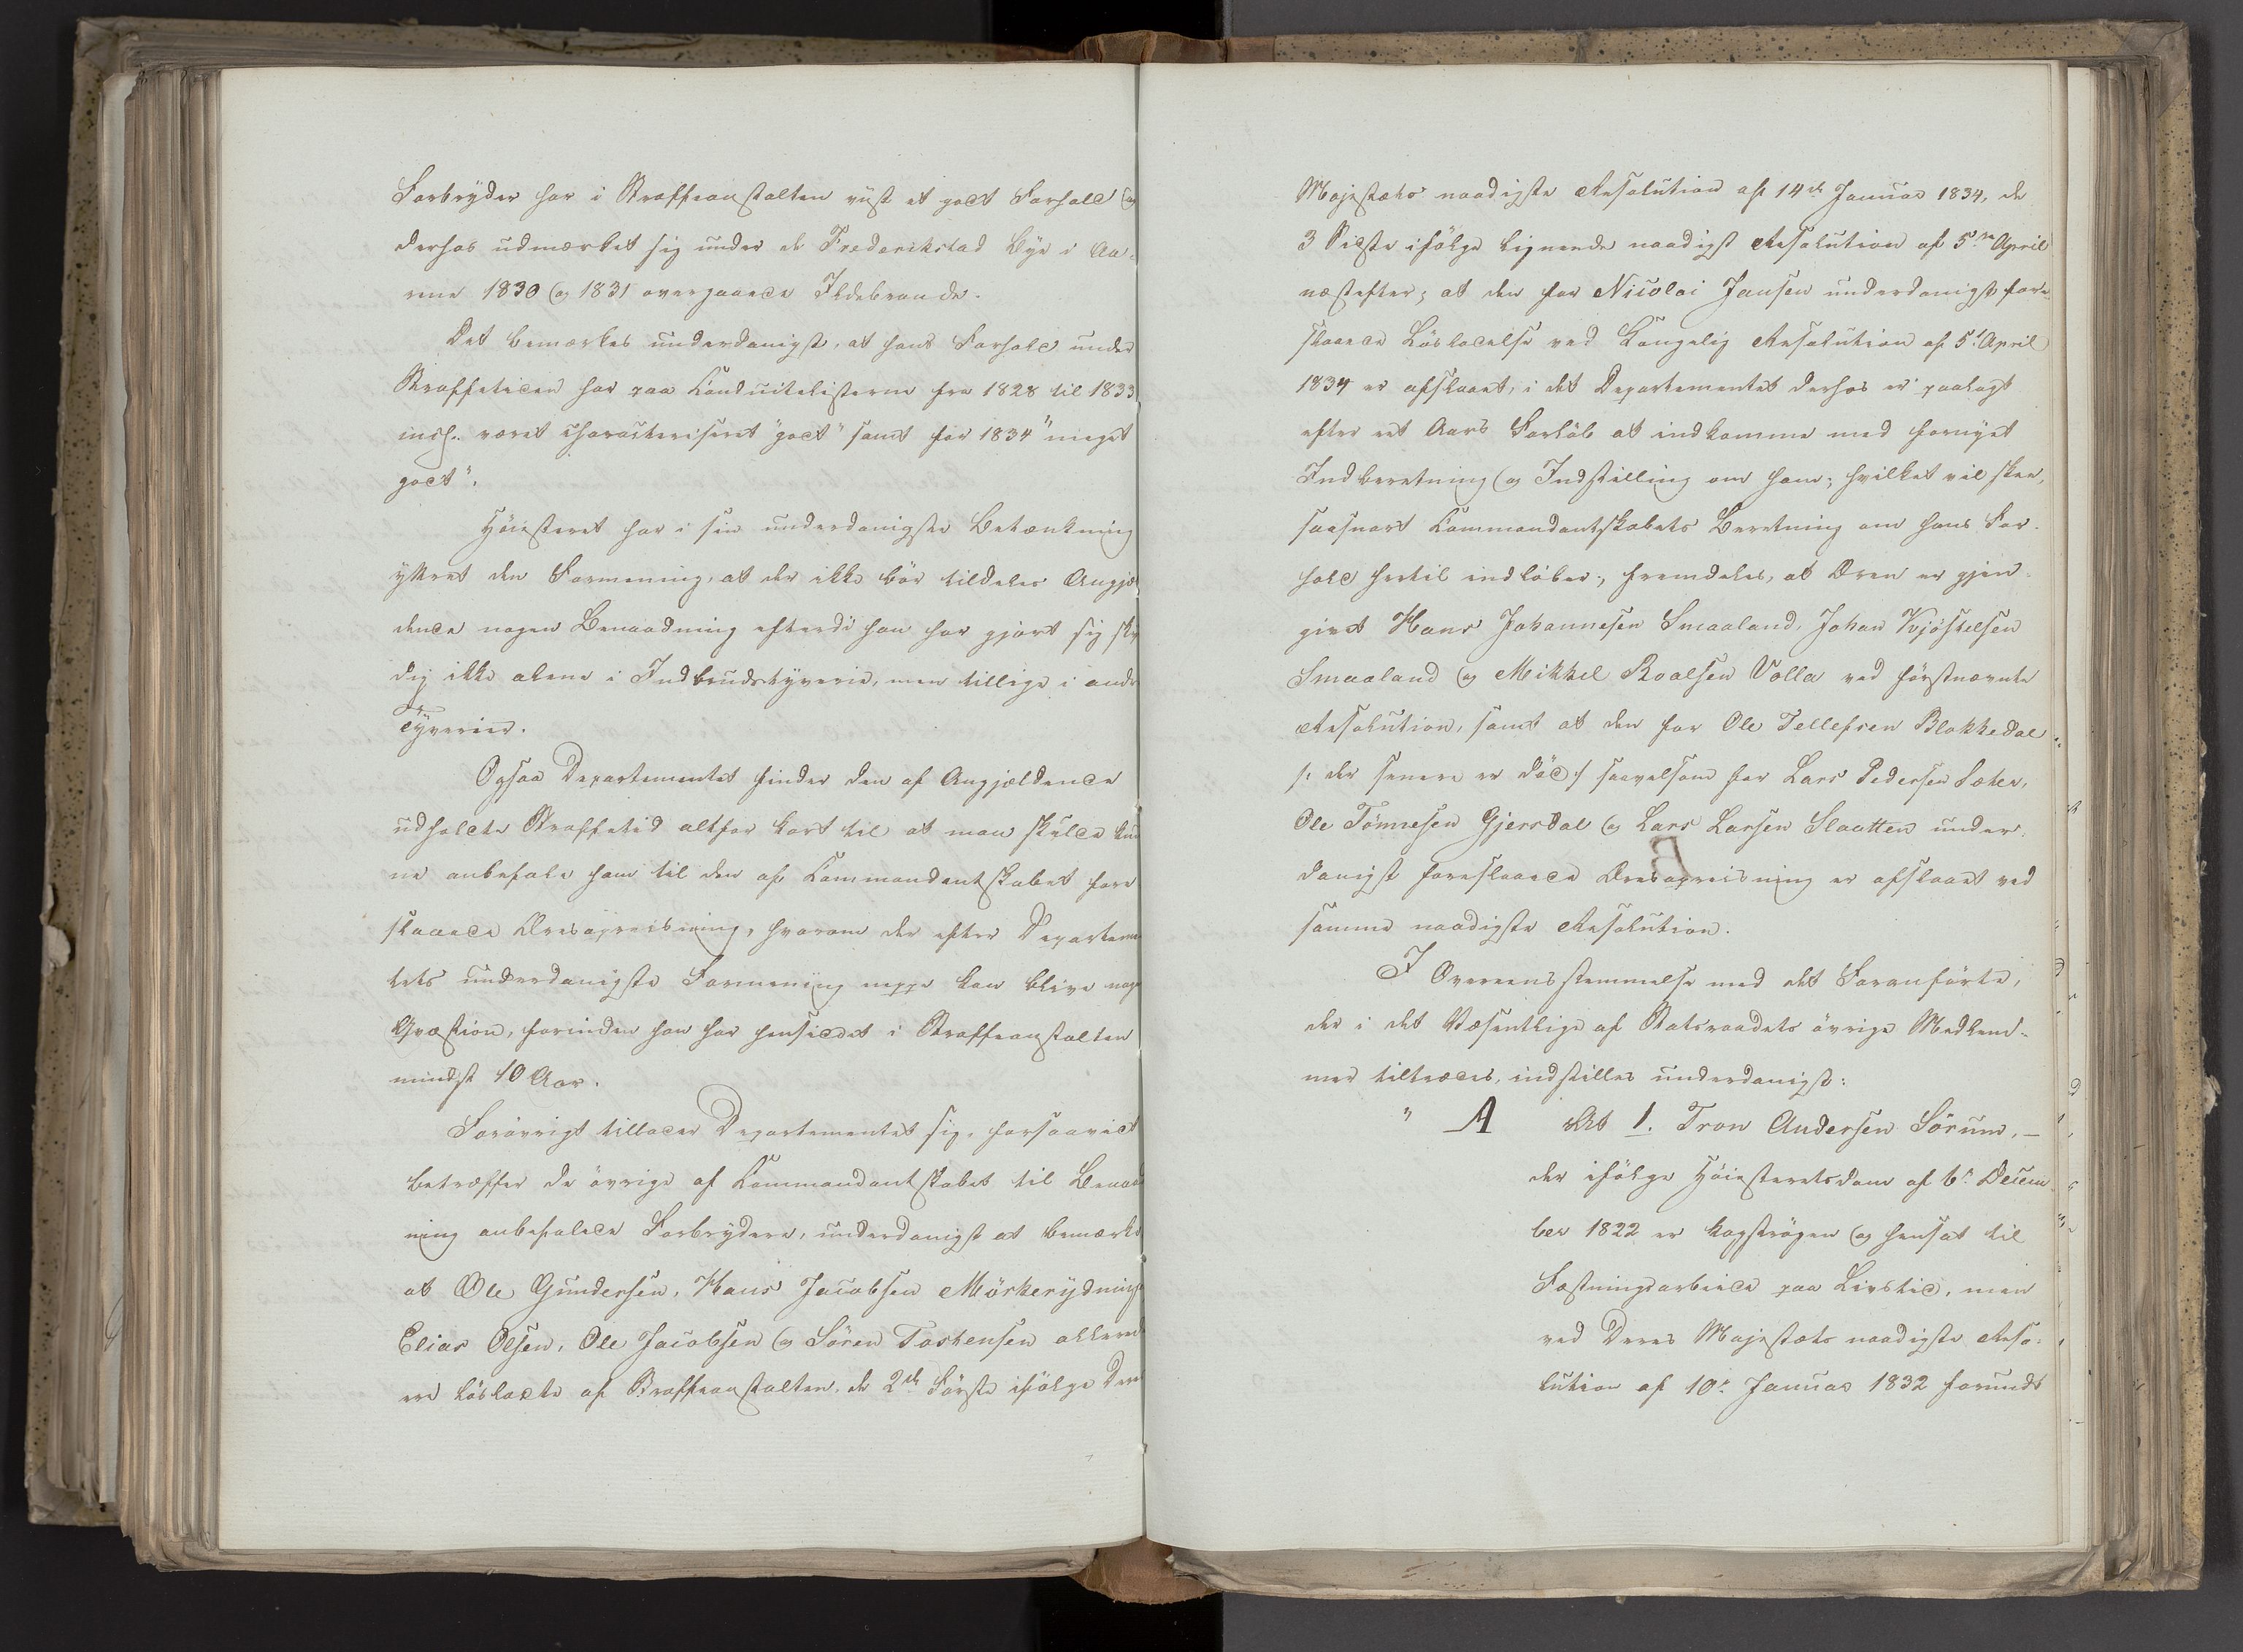 Forbryder har i Straffeanstalten viist et godt Forhold og
derhos udmærket sig under de Frederikstad Bye i Aa-
rene 1830 og 1831 overgaaede Ildebrande.
Det bemærkes underdanigst, at hans Forhold under
Straffetiden har paa Conduitelisterne fra 1828 til 1833
incl. været characteriseret "godt" samt for 1834 "meget
godt".
Høiesteret har i sin underdanigste Betænkning
yttret den Formening, at der ikke bør tildeles Angjæl
dende nogen Benaadning efterdi han har gjort sig sky
dig ikke alene i Indbrudstyverie, men tillige i andre
Tyverier.
Ogsaa Departementet finder den af Angjældende
udholdte Straffetid altfor kort til at man skulde kun
ne anbefale ham til den af Commandantskabet fore
slaaede Æresopreisning, hvorom der efter Departemen
tets underdanigste Formening neppe kan blive noget
Qvæstion, forinden han har hensiddet i Straffeanstalten
mindst 10 Aar.
Forøvrigt tillader Departementet sig, forsaavidt
betræffer de øvrige af Commandantskabet til Benaad
ning anbefalede Forbrydere, underdanigst at bemærke
at Ole Gundersen, Hans Jacobsen Mörkerydningen
Elias Olsen, Ole Jacobsen og Sören Torstensen allerede
ere løsladte af Straffeanstalten, de 2de Første ifølge Deres
Majestæts naadigste Resolution af 14de Januar 1834, de
3 Sidste ifølge lignende naadigst Resolution af 5te April
næstefter; at den for Nicolai Jansen underdanigst fore-
slaaede Løsladelse ved Kongelig Resolution af 5te April
1834 er afslaaet, i det Departementet derhos er paalagt
efter et Aars Forløb at indkomme med fornyet
Indberetning og Indstilling om ham; hvilket vil skee,
saasnart Commandantskabets Beretning om hans For-
hold hertil indløber; fremdeles, at Æren er gjen-
givet Hans Johannesen Smaaland, Johan Kjöstelsen
Smaaland og Mikkel Roalsen Volla ved førstnævnte
Resolution, samt at den for Ole Tellefsen Blokkedal
/: der senere er død :/ saavelsom for Lars Pedersen Sæter,
Ole Tönnesen Gjersdal og Lars Larsen Slaatten under-
danigst foreslaaede Æresopreisning er afslaaet ved
samme naadigste Resolution.
I Overeensstemmelse med det Foranførte,
der i det Væsentlige af Statsraadets øvrige Medlem-
mer tiltrædes, indstilles underdanigst:
" A At 1. Tron Andersen Sörum, –
der ifølge Høiesteretsdom af 6te Decem
ber 1822 er kagstrøgen og hensat til
Fæstningsarbeide paa Livstid, men
ved Deres Majestæts naadigste Reso-
lution af 10de Januar 1832 forundt